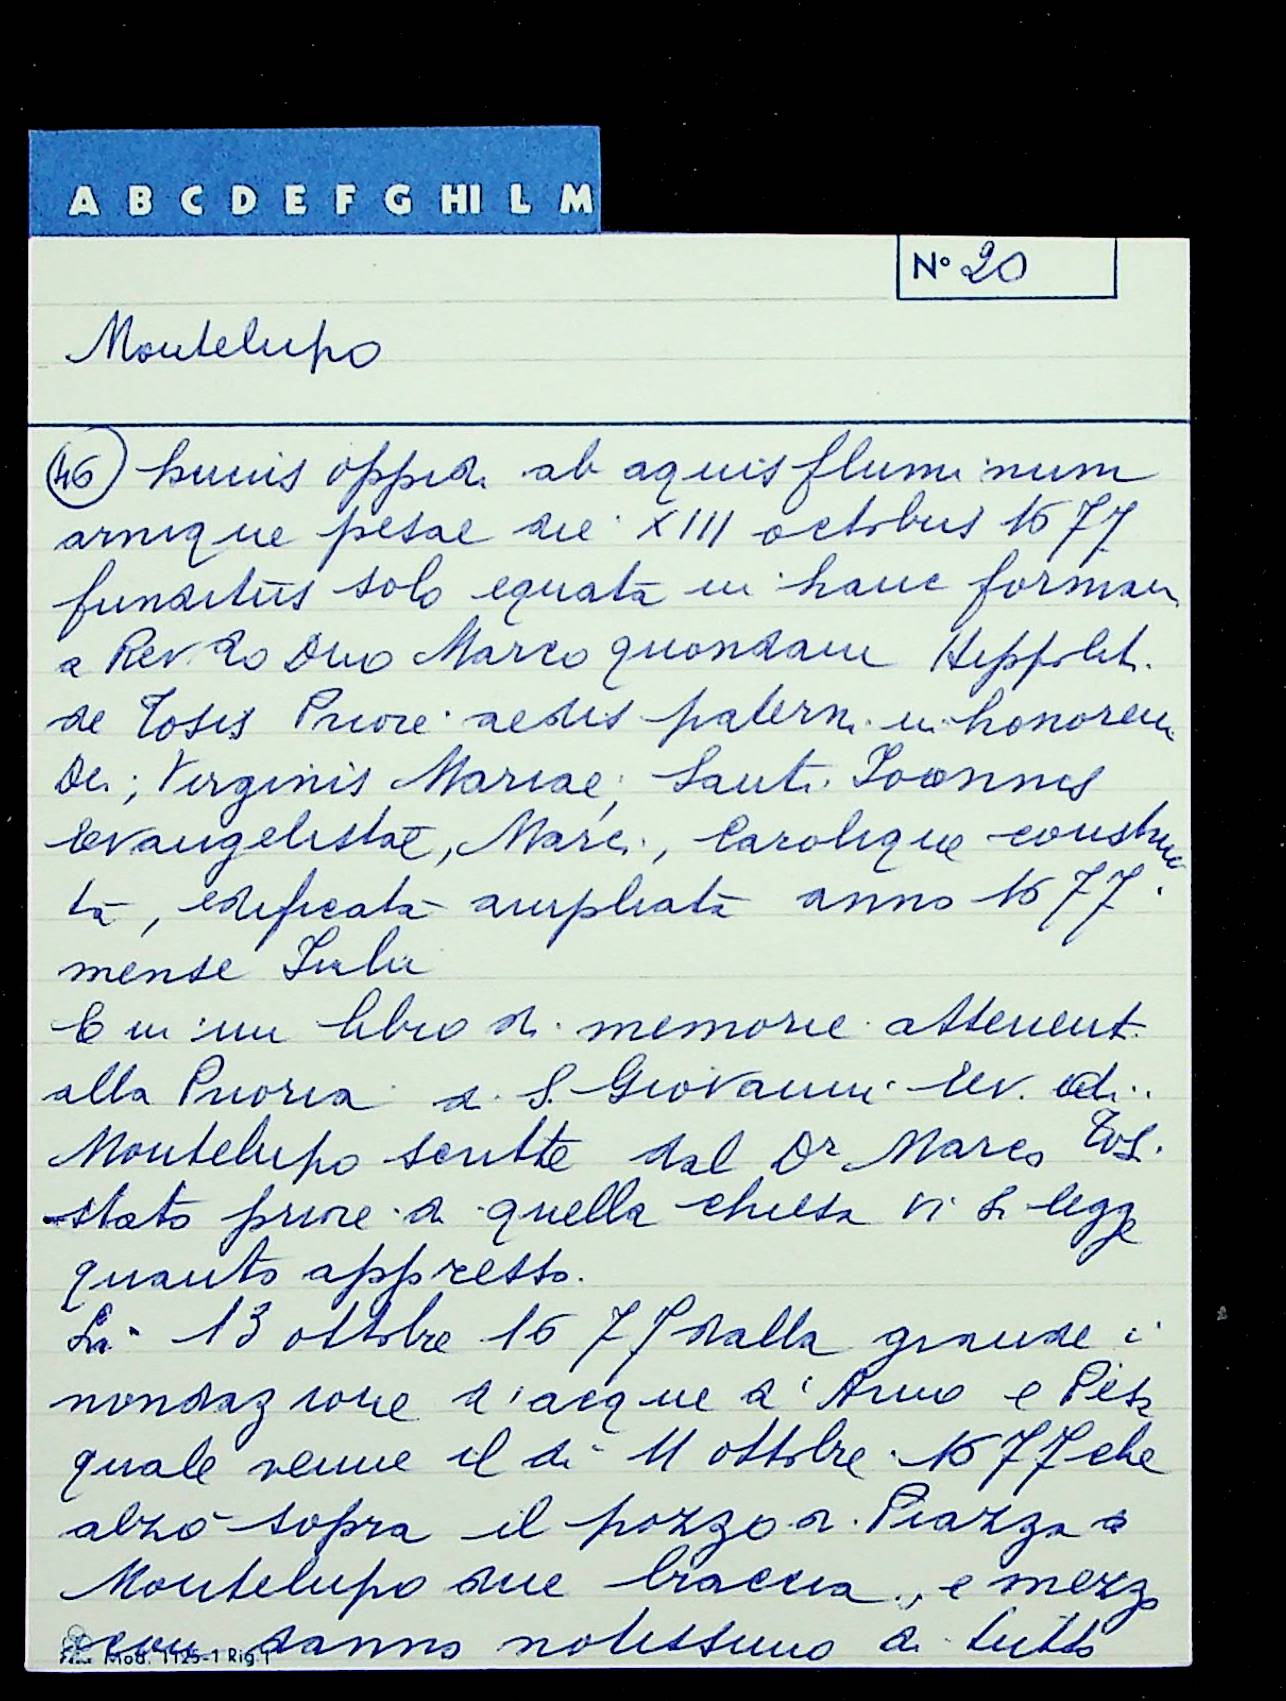 A B C D E F G HI L M
N° 20
Montelupo
46 huius oppidi ab aquis fluminum
arnique pesae die XIII octobus 1677
funditus solo equata in hanc forman
a Rev.do Dno Marco quondam Hippoliti
de Tosis Priore aedis paterni in honorem
Dei; Virginis Mariae; Santi Ioannes
Evangelistae, Marci, Carolique construc
ta, edificata ampliata anno 1677
mense Iulii
E in un libro di memorie attenenti
alla Prioria di S. Giovanni Ev. di
Montelupo scritte dal Dr Marco Tosi
stato priore di quella chiesa vi si legge
quanto appresso.
Li 13 ottobre 1677 dalla grande i
nondazione d'acque d'Arno e Pesa
quale venne il di 11 ottobre 1677 che
alzò sopra il pozzo di Piazza a
Montelupo due braccia, e mezzo
con danno notissimo di tutto
Mod. 1125-1 Rig. 1